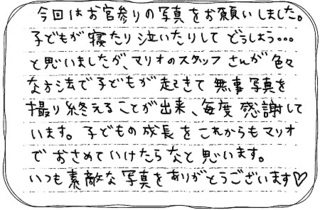 今回はお宮参りの写真をお願いしました。
子どもが寝たり泣いたりしてどうしよう…
と思いましたが、マリオのスタッフさんが色々
な方法で子どもが起きて無事写真を
撮り終えることが出来、毎度感謝して
います。子どもの成長をこれからもマリオ
でおさめていけたらなと思います。
いつも素敵な写真をありがとうございます♡